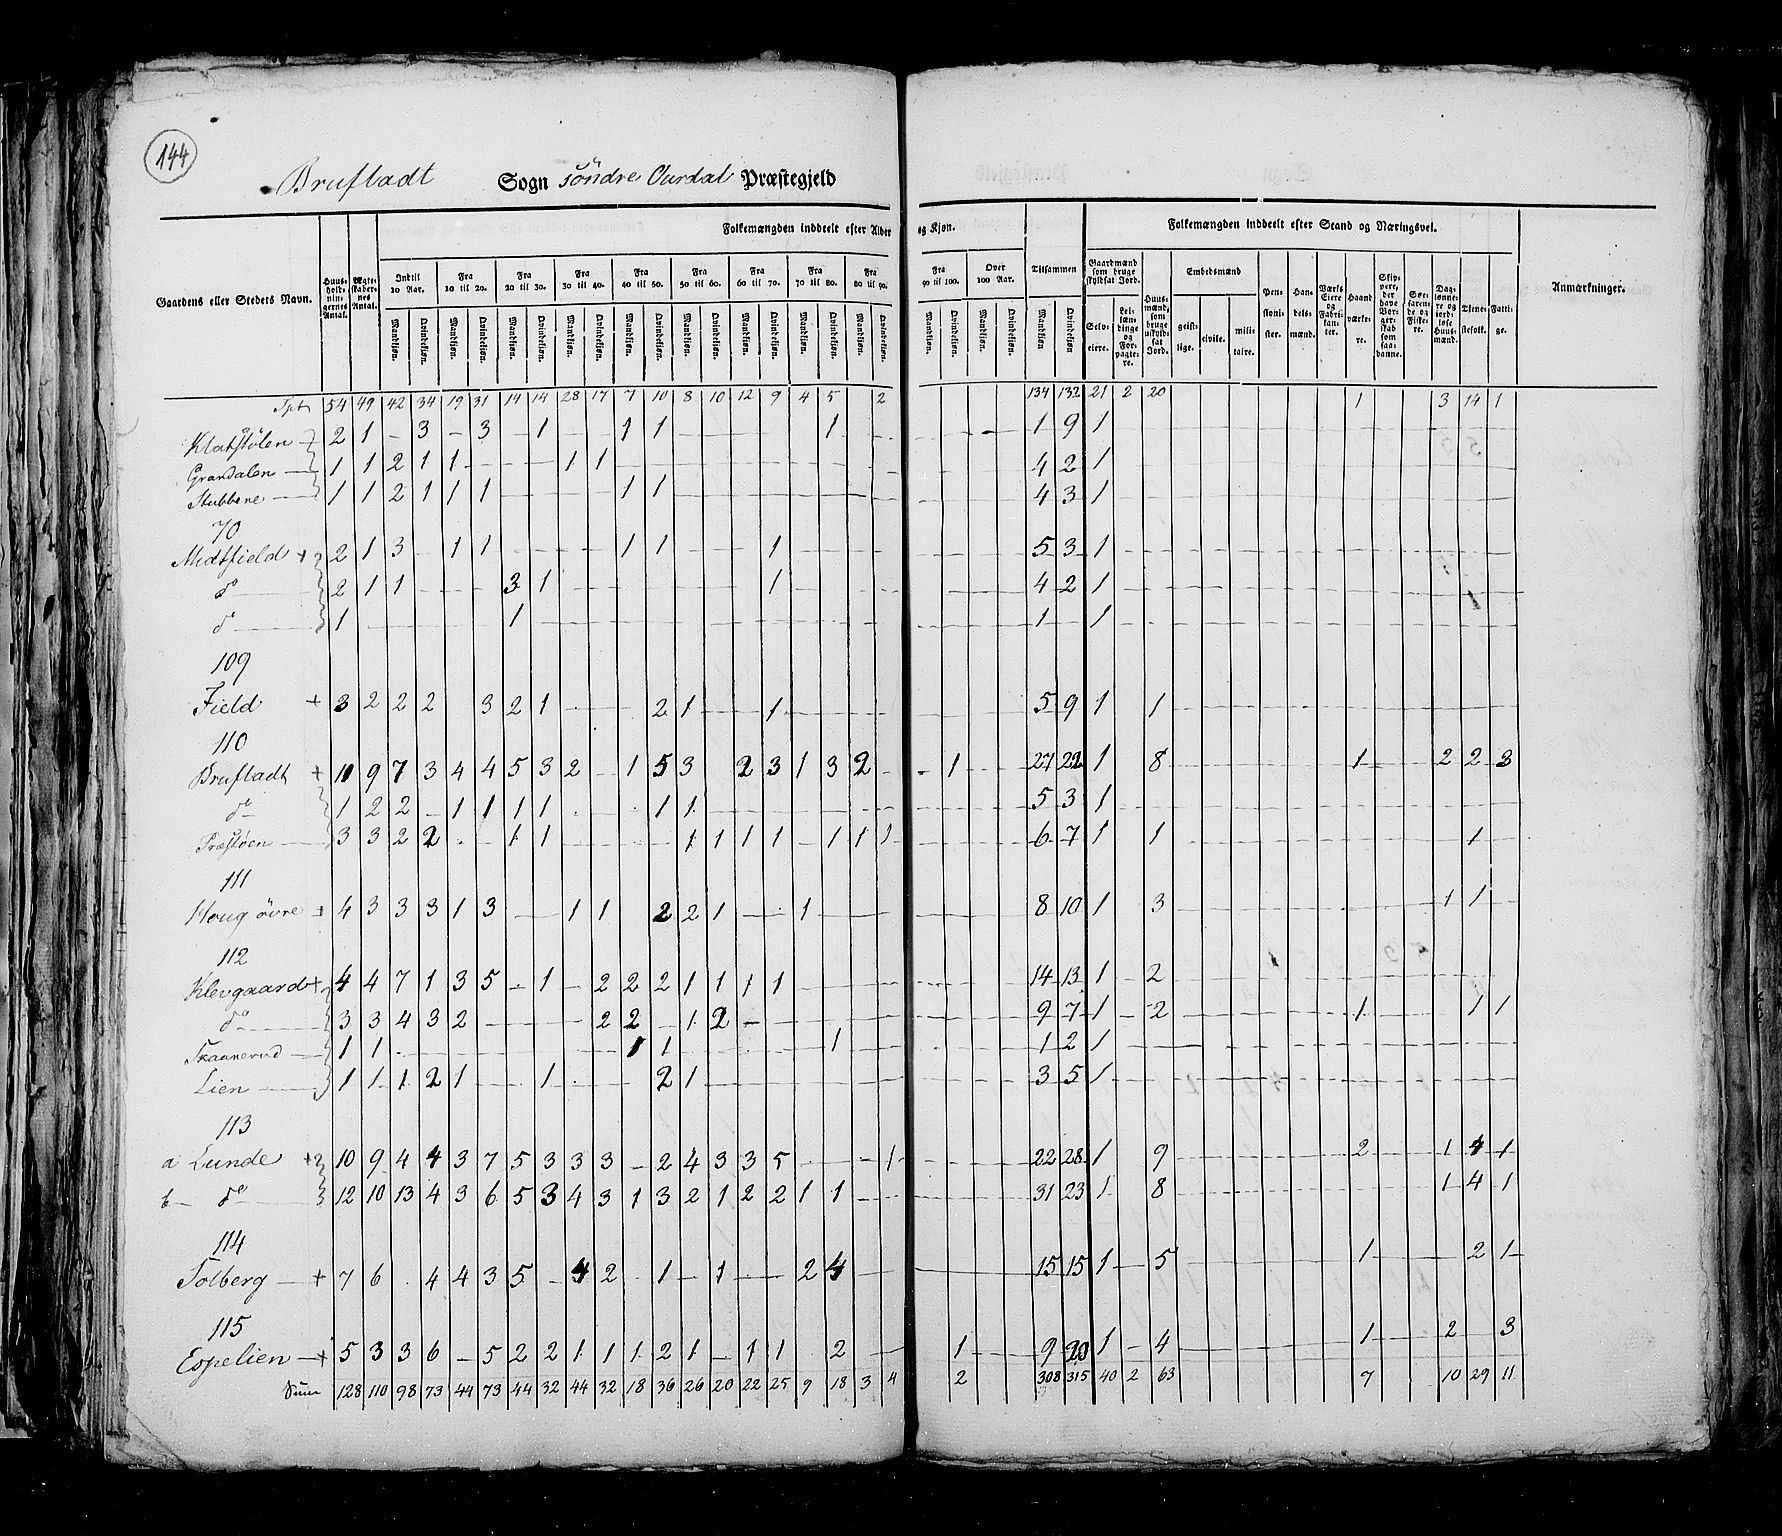 144
Brufladt Sogn söndre Ourdal Præstegjeld
Folkemængden inddeelt efter Alder og Kjøn.
Folkemængden inddeelt efter Stand og Næringsvei.
Gaardens eller Stedets Navn.
Huusholdningernes Antal.
Ægteskabernes Antal.
Indtil 10 Aar.
Fra 10 til 20.
Fra 20 til 30.
Fra 30 til 40.
Fra 40 til 50.
Fra 50 til 60.
Fra 60 til 70.
Fra 70 til 80.
Fra 80 til 90.
Fra 90 til 100.
Over 100 Aar.
Tilsammen
Mandkjøn. Qvindekjøn. Mandkjøn. Qvindekjøn. Mandkjøn. Qvindekjøn. Mandkjøn. Qvindekjøn. Mandkjøn. Qvindekjøn. Mandkjøn. Qvindekjøn. Mandkjøn. Qvindekjøn. Mandkjøn. Qvindekjøn. Mandkjøn. Qvindekjøn. Mandkjøn. Qvindekjøn. Mandkjøn. Qvindekjøn. Mandkjøn Qvindekjøn
Gaardmænd som bruge skyldsat Jord.
Selveiere.
Leilændinge og Forpagtere.
Huusmænd, som bruge uskyldsat Jord.
Embedsmænd
geistlige. civile. militaire.
Pensionister.
Handelsmænd.
Værks Eiere og Fabrikanter.
Haandværkere.
Skippere, der have Borgerskab som saadanne.
Søefarende og Fiskere.
Dagslønnere og jordløse Huusmænd.
Tjenestefolk.
Fattige.
Anmærkninger.
Tpt 54 49 42 34 19 31 14 14 28 17 7 10 8 10 12 9 4 5 2 134 132 21 2 20 1 3 14 1
Klatstølen 2 1 - 3 - 3 - 1 1 1 1 1 9 1
Grandalen 1 1 2 1 1 1 1 4 2 1
Stubbene 1 1 2 1 1 1 1 1 4 3 1
70
Midtfield + 2 1 3 1 1 1 1 1 5 3 1
do 2 1 1 3 1 1 4 2 1
do 1 1 1 1
109
Field + 3 2 2 2 3 2 1 2 1 1 5 9 1 1
110
Brufladt + 10 9 7 3 4 4 5 3 2 1 5 3 2 3 1 3 2 1 27 22 1 8 1 2 2 3
do 1 2 2 - 1 1 1 1 1 1 5 3 1
Præstøen 3 3 2 2 1 1 1 1 1 1 - 1 1 1 6 7 1 1 1
111
Houg övre + 4 3 3 3 1 3 1 1 2 2 1 1 8 10 1 3 1 1
112
Klevgaard + 4 4 7 1 3 5 - 1 - 2 2 2 1 1 1 1 14 13 1 2
do 3 3 4 3 2 2 2 - 1 2 9 7 1 2 1 1 1
1 1 1 1 1 1 2 1
Lien 1 1 1 2 1 1 2 1 3 5 1
113
a Lunde + 10 9 4 4 3 7 5 3 3 3 - 2 4 3 3 5 1 22 28 1 9 2 1 4 1
b do 12 10 13 4 3 6 5 3 4 3 1 3 2 1 2 2 1 1 31 23 1 8 1 4 1
114
Tolberg + 7 6 4 4 3 5 - 4 2 1 - 1 2 4 15 15 1 5 1 2 1
115
Espelien + 5 3 3 6 - 5 2 2 1 1 1 2 1 - 1 1 2 1 9 20 1 4 1 2 3
Sum 128 110 98 73 44 73 44 32 44 32 18 36 26 20 22 25 9 18 3 4 2 308 315 40 2 63 7 10 29 11